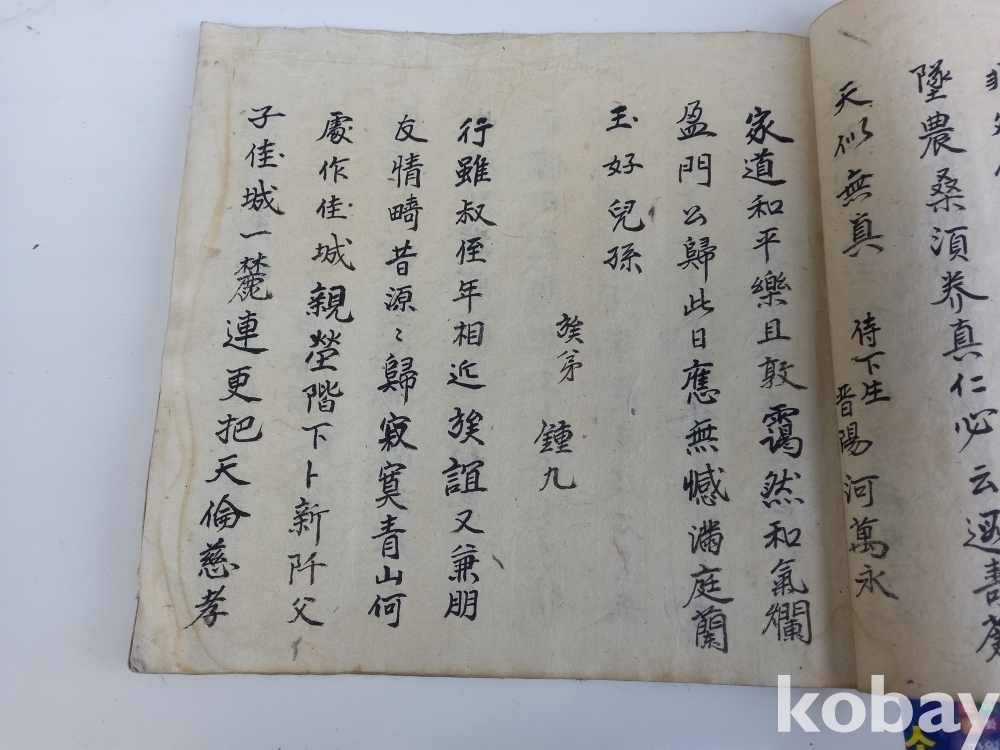 墜農桑湏养真仁必云
天似無真
侍下生
晋陽河萬永
家道和平樂且敦靄然和氣爛
盈門公歸此日應無憾滿庭蘭
玉好兒孫
族弟 鍾九
行雖叔侄年相近族誼又兼朋
友情疇昔源〻歸寂寞青山何
處作佳城親塋階下卜新阡父
子佳城一麓連更把天倫慈孝
kobay